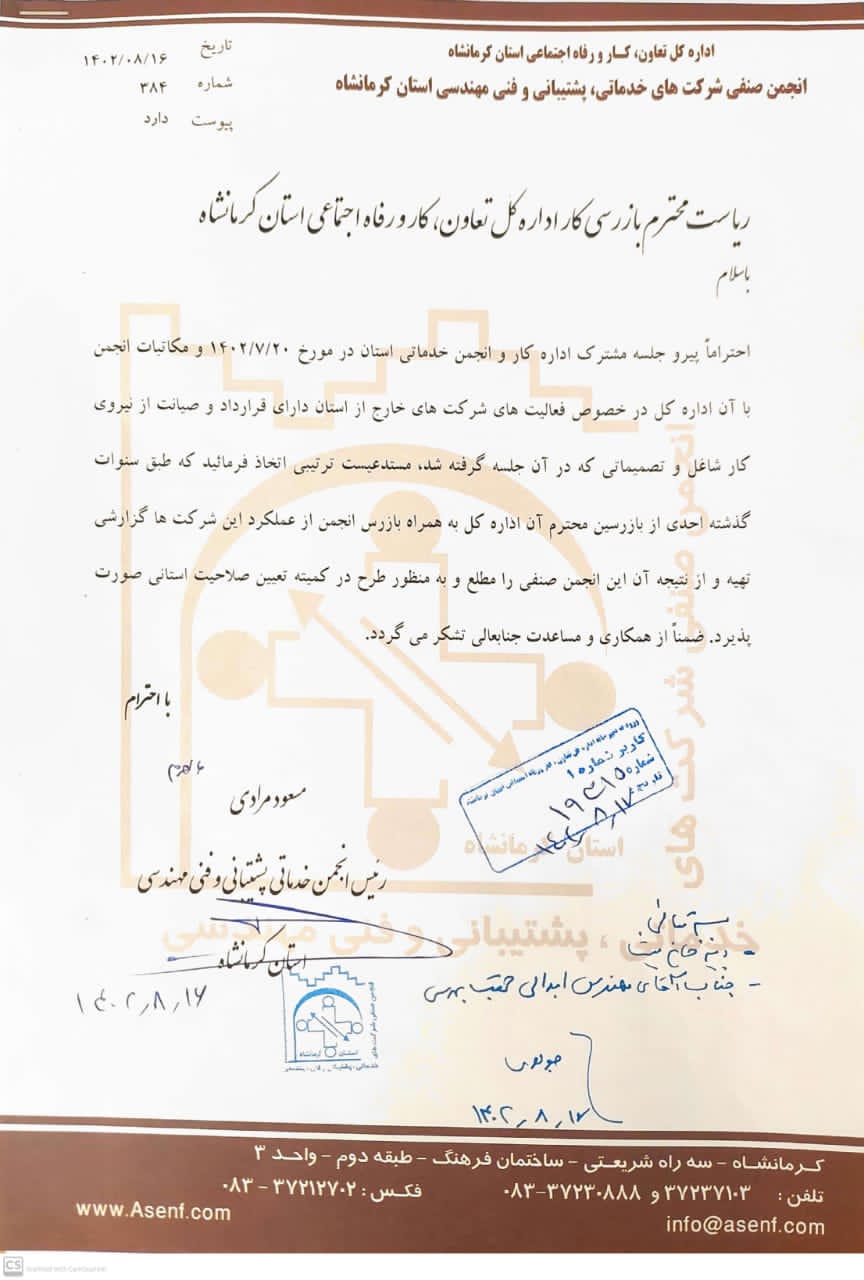 اداره کل تعاون، کار و رفاه اجتماعی استان کرمانشاه
انجمن صنفی شرکت های خدماتی، پشتیبانی و فنی مهندسی استان کرمانشاه
تاریخ ۱۴۰۲/۰۸/۱۶
شماره ۳۸۴
پیوست دارد
ریاست محترم بازرسی کار اداره کل تعاون، کار و رفاه اجتماعی استان کرمانشاه
باسلام
احتراماً پیرو جلسه مشترک اداره کار و انجمن خدماتی استان در مورخ ۱۴۰۲/۷/۲۰ و مکاتبات انجمن
با آن اداره کل در خصوص فعالیت های شرکت های خارج از استان دارای قرارداد و صیانت از نیروی
کار شاغل و تصمیماتی که در آن جلسه گرفته شد، مستدعیست ترتیبی اتخاذ فرمائید که طبق سنوات
گذشته احدی از بازرسین محترم آن اداره کل به همراه بازرس انجمن از عملکرد این شرکت ها گزارشی
تهیه و از نتیجه آن این انجمن صنفی را مطلع و به منظور طرح در کمیته تعیین صلاحیت استانی صورت
پذیرد. ضمناً از همکاری و مساعدت جنابعالی تشکر می گردد.
با احترام
مسعود مرادی
رئیس انجمن خدماتی پشتیبانی و فنی مهندسی
استان کرمانشاه
۱۴۰۲٫۸٫۱۶
کاربر شماره ۱
شماره
تاریخ
انجمن صنفی شرکت های
استان کرمانشاه
خدماتی ، پشتیبانی و فنی مهندسی
بسمه تعالی
- جناب آقای مهندس ابدالی جهت بررسی
۱۴۰۲٫۸٫۱۷
انجمن صنفی شرکت های
استان کرمانشاه
کرمانشاه - سه راه شریعتی - ساختمان فرهنگ - طبقه دوم - واحد ۳
تلفن : ۳۷۲۳۷۱۰۳ و ۳۷۲۳۰۸۸۸-۰۸۳ فکس : ۳۷۲۱۲۷۰۲ - ۰۸۳
www.Asenf.com info@asenf.com
CS Scanned with CamScanner